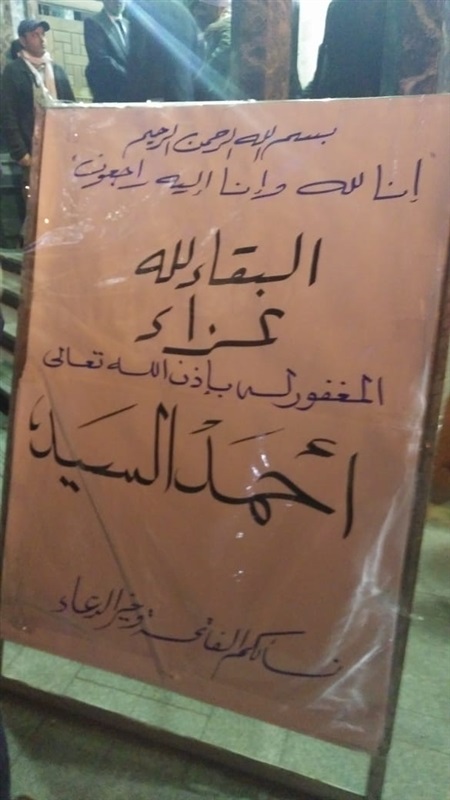 بسم الله الرحمن الرحيم
"إنا لله وإنا إليه راجعون"
البقاء لله
عزاء
المغفور له بإذن الله تعالى
أحمد السيد
نسألكم الفاتحة وخير الدعاء